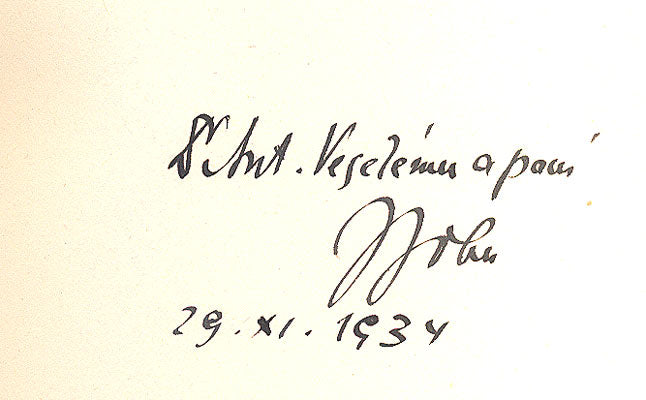 Dr Ant. Veselému a paní
JJohn
29. XI. 1934